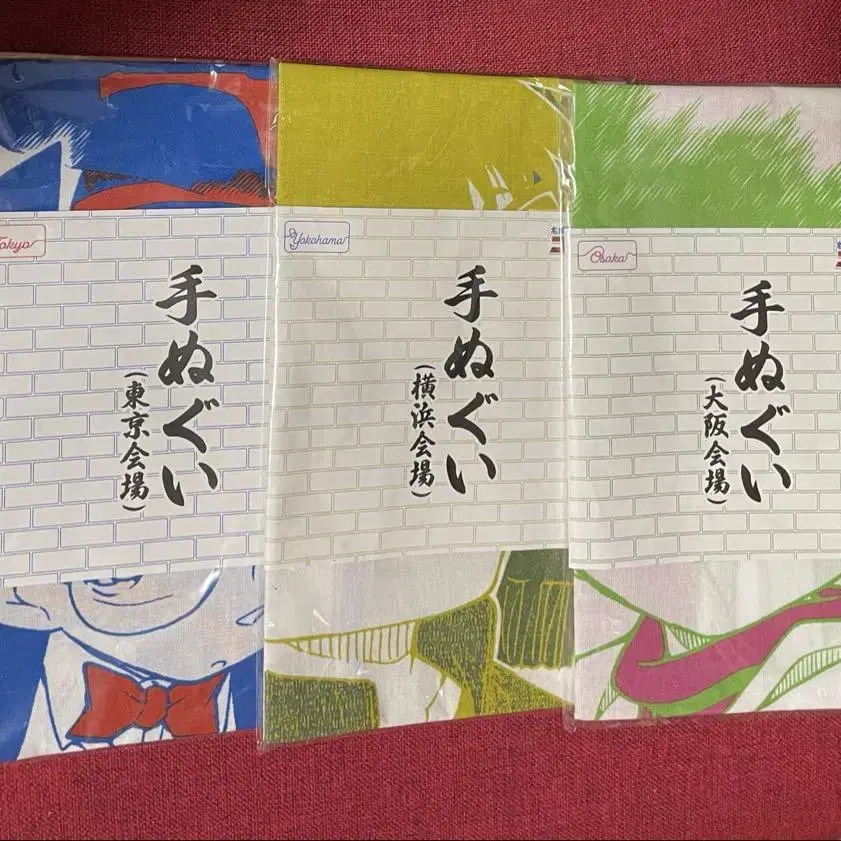 Tokyo
手ぬぐい
(東京会場)
Yokohama
手ぬぐい
(横浜会場)
名
Osaka
手ぬぐい
(大阪会場)